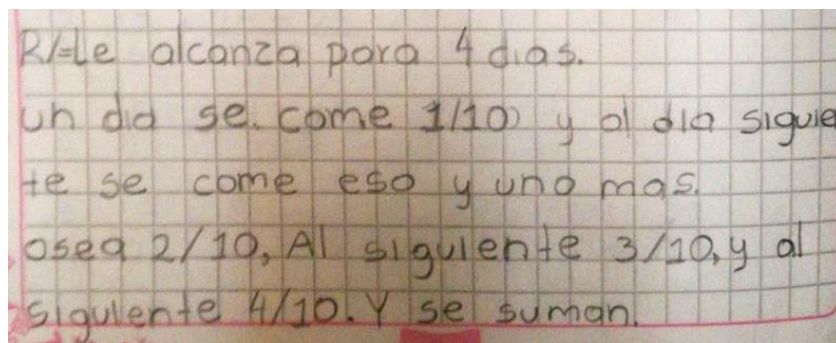 R/=Le alcanza para 4 dias.
un dia se. come 1/10) y al dia siguie
te se come eso y uno mas.
osea 2/10, Al siguiente 3/10, y al
siguiente 4/10. Y se suman.